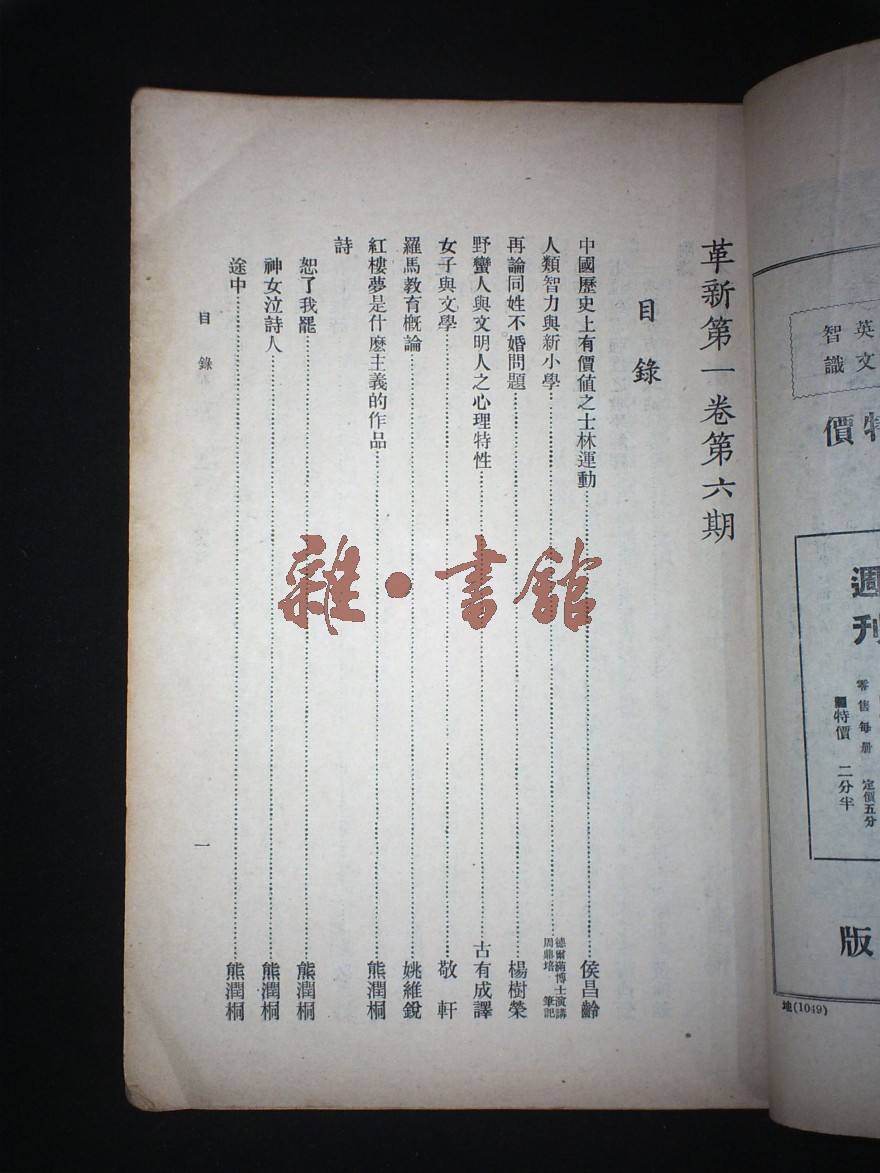 英文
智識
特價
週刊
零售每册 定價五分
特價 二分半
版
地(1049)
革新第一卷第六期
目錄
中國歷史上有價值之士林運動 侯昌齡
人類智力與新小學 德爾滿博士演講 周鼎培 筆記
再論同姓不婚問題 楊樹榮
野蠻人與文明人之心理特性 古有成譯
女子與文學 敬軒
羅馬教育概論 姚維銳
紅樓夢是什麽主義的作品 熊潤桐
詩
恕了我罷 熊潤桐
神女泣詩人 熊潤桐
途中 熊潤桐
目錄
一
雜·書館